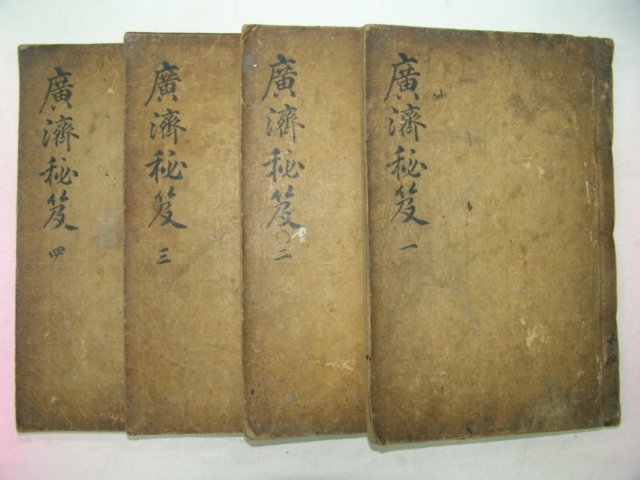 廣濟秘笈 一
廣濟秘笈○二
廣濟秘笈 三
廣濟秘笈 四